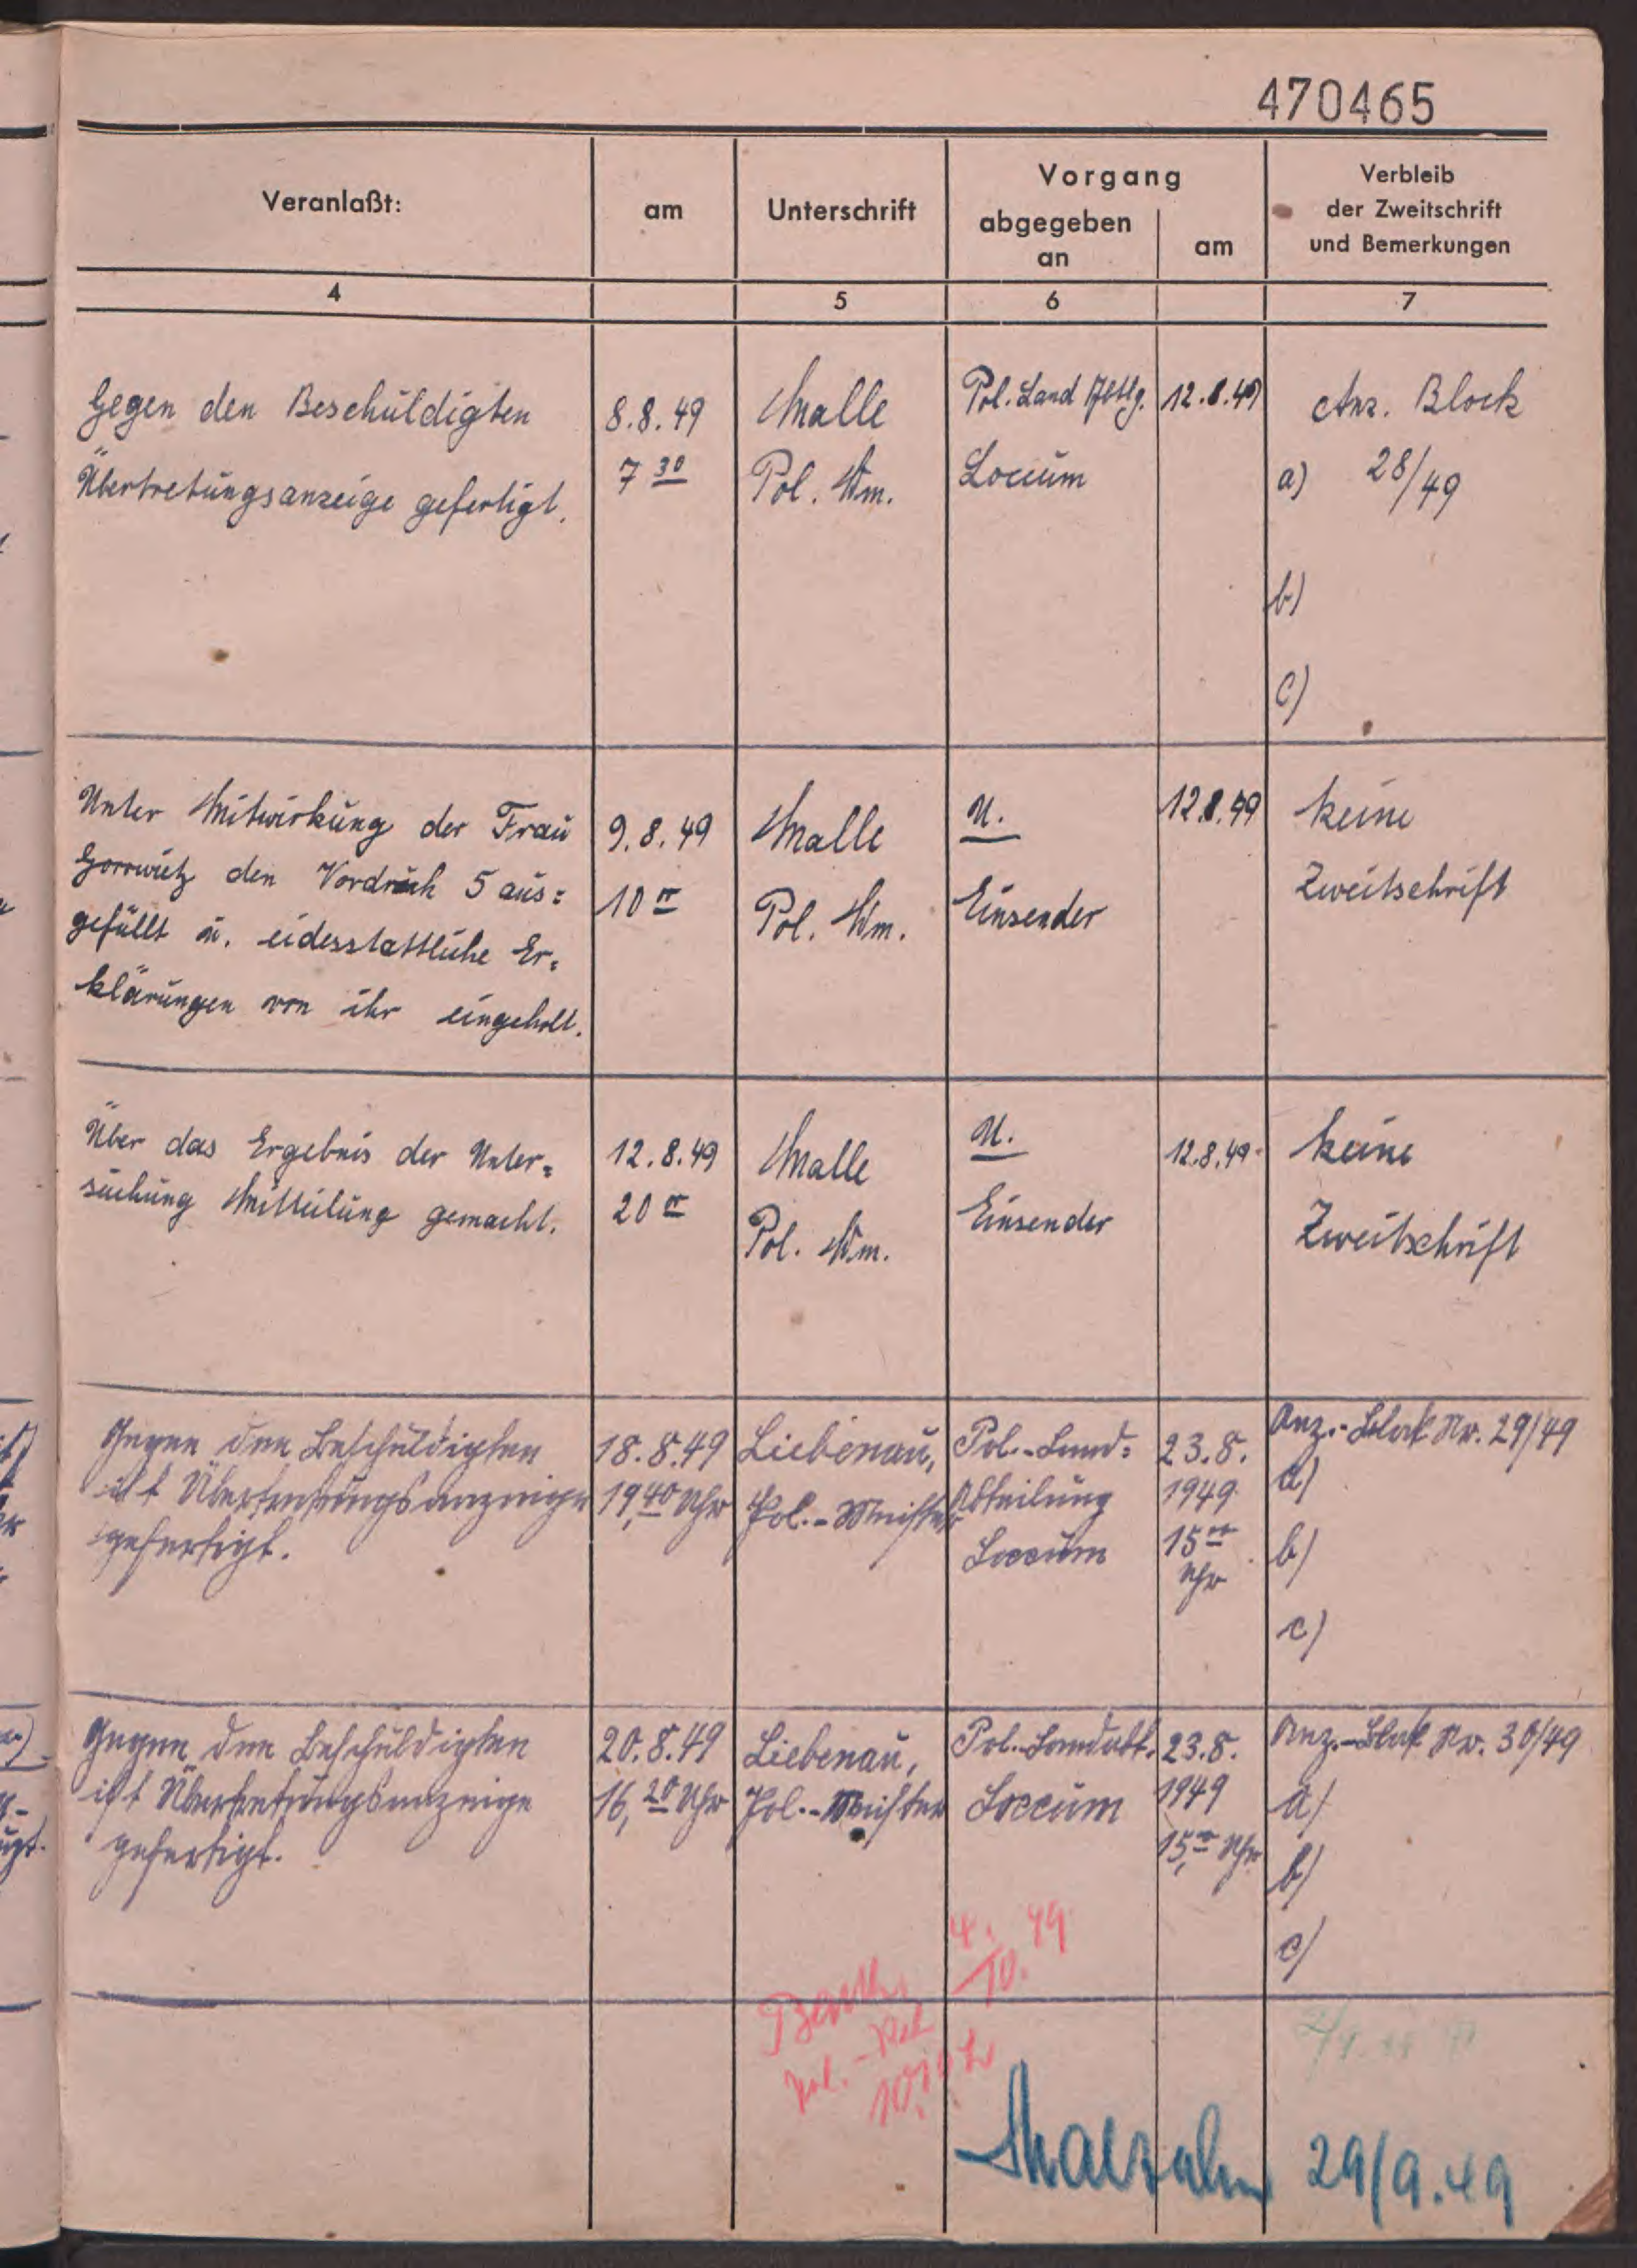 470465
Veranlaßt:
am
Unterschrift
Vorgang
abgegeben
an
am
Verbleib
der Zweitschrift
und Bemerkungen
4
5
6
7
Gegen den Beschuldigten
Übertretungsanzeige gefertigt.
8.8.49
7 30
Malle
Pol. Wm.
Pol. Land Abtlg.
Loccum
12.8.49
Anz. Block
a) 28/49
b)
c)
Unter Mitwirkung der Frau
den Vordruck 5 aus=
gefüllt u. eidesstattliche Er=
klärungen von ihr eingeholt.
9.8.49
10 00
Malle
Pol. Wm.
U.
Einsender
12.8.49
keine
Zweitschrift
Über das Ergebnis der Unter=
suchung Mitteilung gemacht.
12.8.49
20 00
Malle
Pol. Wm.
U.
Einsender
12.8.49
keine
Zweitschrift
Gegen den Beschuldigten
ist Übertretungsanzeige
gefertigt.
18.8.49
19,40 Uhr
Liebenau,
Pol.-Meister
Pol.-Land=
Abteilung
Loccum
23.8.
1949
15 00
Uhr
Anz.-Block Nr. 29/49
a)
b)
c)
Gegen den Beschuldigten
ist Übertretungsanzeige
gefertigt.
20.8.49
16,20 Uhr
Liebenau,
Pol.-Meister
Pol.-Landabt.
Loccum
23.8.
1949
15,00 Uhr
Anz.-Block Nr. 30/49
a)
b)
c)
4. 49
10.
Pol.-
29/9.49